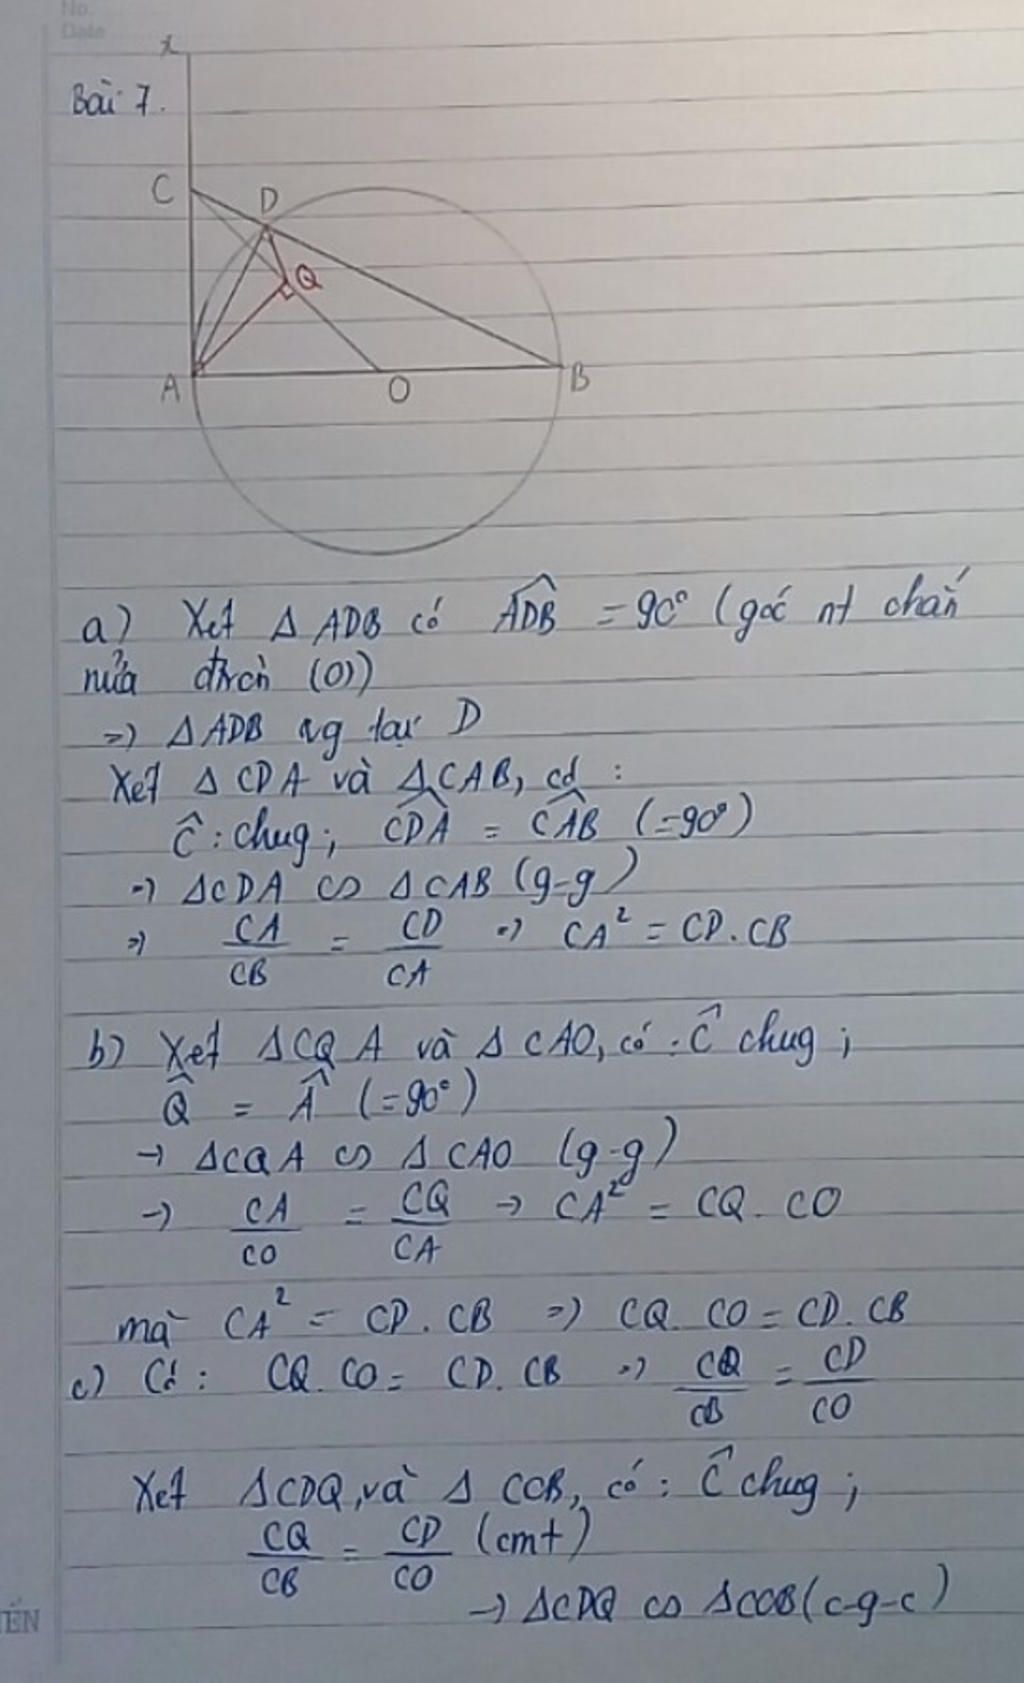 No.
Date
x
Bài 7.
C
D
Q
A
O
B
a) Xét Δ ADB có ADB̂ = 90° (góc nt chắn
nửa đtròn (O))
=> Δ ADB vg tại D
Xét Δ CDA và Δ CAB, có :
Ĉ : chug ; CDÂ = CAB̂ (=90°)
=> ΔCDA ∽ ΔCAB (g-g)
=> CA/CB = CD/CA => CA² = CD.CB
b) Xét ΔCQA và Δ CAO, có : Ĉ chug ;
Q̂ = Â (=90°)
-> ΔCQA ∽ ΔCAO (g-g)
-> CA/CO = CQ/CA -> CA² = CQ. CO
mà CA² = CD. CB => CQ. CO = CD. CB
c) Có : CQ. CO = CD. CB => CQ/CB = CD/CO
Xét ΔCDQ, và Δ COB, có : Ĉ chug ;
CQ/CB = CD/CO (cmt)
-> ΔCDQ ∽ ΔCOB (c-g-c)
ẾN